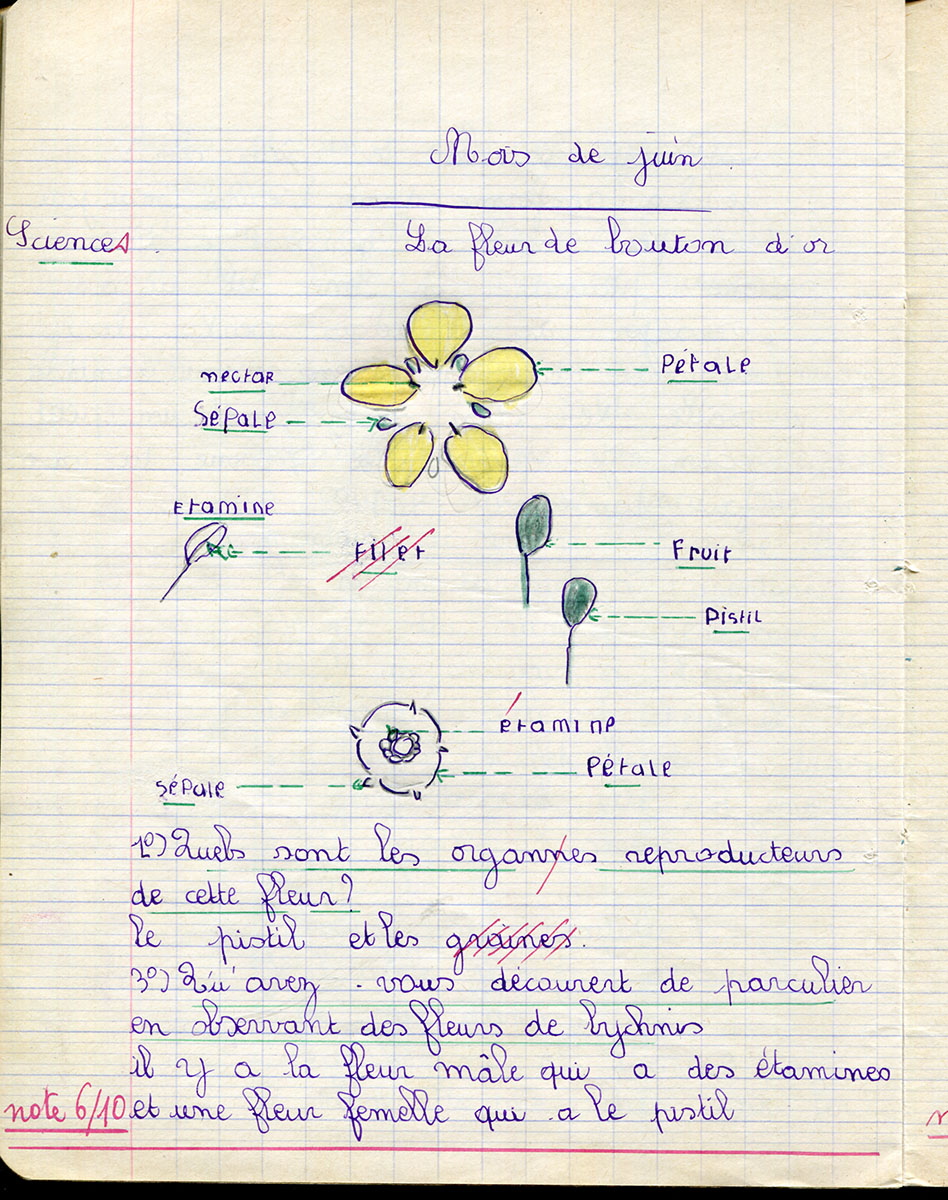 Mois de juin
Sciences
La fleur de bouton d'or
nectar
Pétale
Sépale
Etamine
Filet
Fruit
Pistil
étamine
Pétale
Sépale
1º) Quels sont les organnes reproducteurs
de cette fleur?
le pistil et les graines.
3º) Qu'avez-vous découvert de parculier
en observant des fleurs de lychnis
il y a la fleur mâle qui a des étamines
note 6/10 et une fleur femelle qui a le pistil